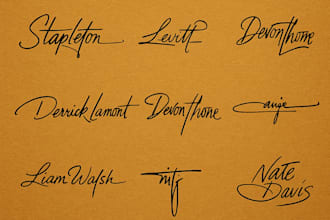 Stapleton
Levitt
Devonthorne
Derrick Lamont
Devonthorne
Liam Walsh
Nate
Davis